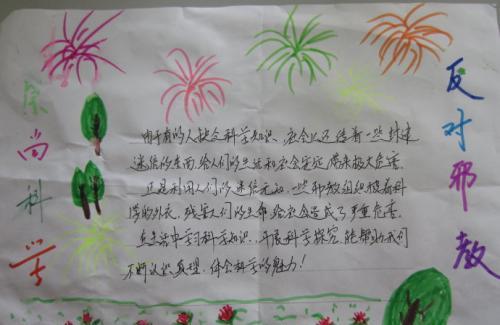 崇尚科学
反对邪教
由于有的人缺乏科学知识,社会上还信着一些封建
迷信的东西,给人们的生活和社会安定带来极大危害。
正是利用人们的迷信无知,一些邪教组织披着科
学的外衣,残害人们的生命,给社会造成了严重危害。
在生活中学习科学知识,开展科学探究,能帮助我们
不断认识真理,体会科学的魅力!